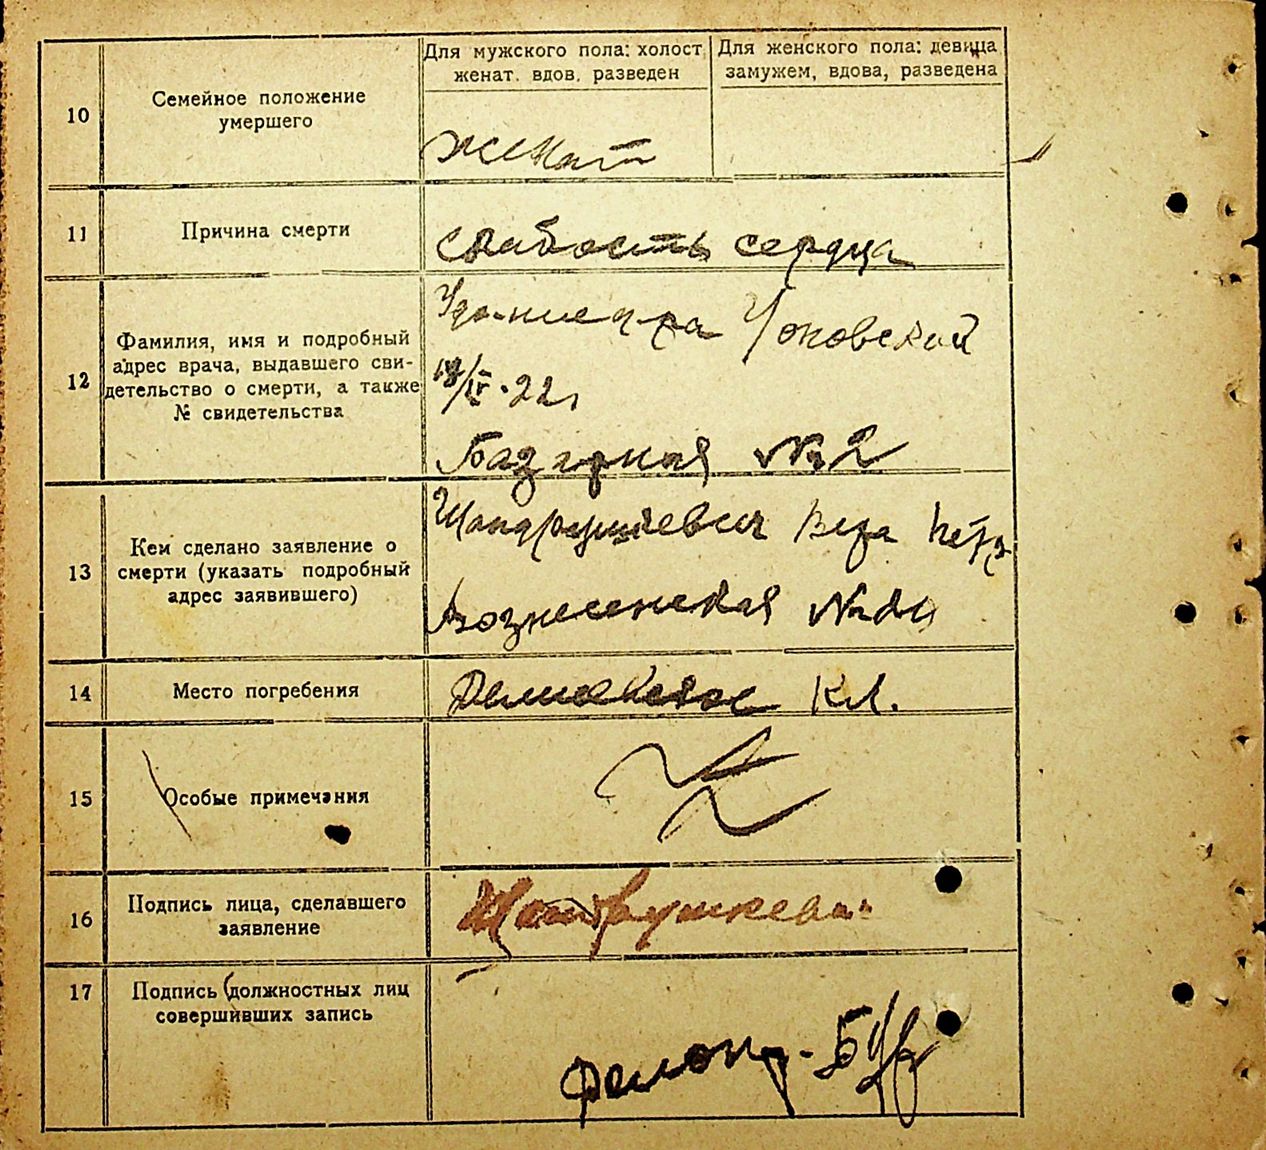 Для мужского пола: холост
женат. вдов. разведен
Для женского пола: девица
замужем, вдова, разведена
10
Семейное положение
умершего
женат
11
Причина смерти
слабость сердца
12
Фамилия, имя и подробный
адрес врача, выдавшего сви-
детельство о смерти, а также
№ свидетельства
18/IV-22 г
Базарная № 2
13
Кем сделано заявление о
смерти (указать подробный
адрес заявившего)
Вера Петр
Вознесенская
14
Место погребения
Кл.
15
Особые примечания
16
Подпись лица, сделавшего
заявление
17
Подпись должностных лиц
совершивших запись